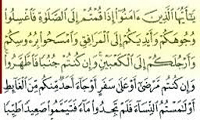 يَٰٓأَيُّهَا ٱلَّذِينَ ءَامَنُوٓا۟ إِذَا قُمْتُمْ إِلَى ٱلصَّلَوٰةِ فَٱغْسِلُوا۟
وُجُوهَكُمْ وَأَيْدِيَكُمْ إِلَى ٱلْمَرَافِقِ وَٱمْسَحُوا۟ بِرُءُوسِكُمْ
وَأَرْجُلَكُمْ إِلَى ٱلْكَعْبَيْنِ ۚ وَإِن كُنتُمْ جُنُبًا فَٱطَّهَّرُوا۟ ۚ
وَإِن كُنتُم مَّرْضَىٰٓ أَوْ عَلَىٰ سَفَرٍ أَوْ جَآءَ أَحَدٌ مِّنكُم مِّنَ ٱلْغَآئِطِ
أَوْ لَٰمَسْتُمُ ٱلنِّسَآءَ فَلَمْ تَجِدُوا۟ مَآءً فَتَيَمَّمُوا۟ صَعِيدًا طَيِّبًا